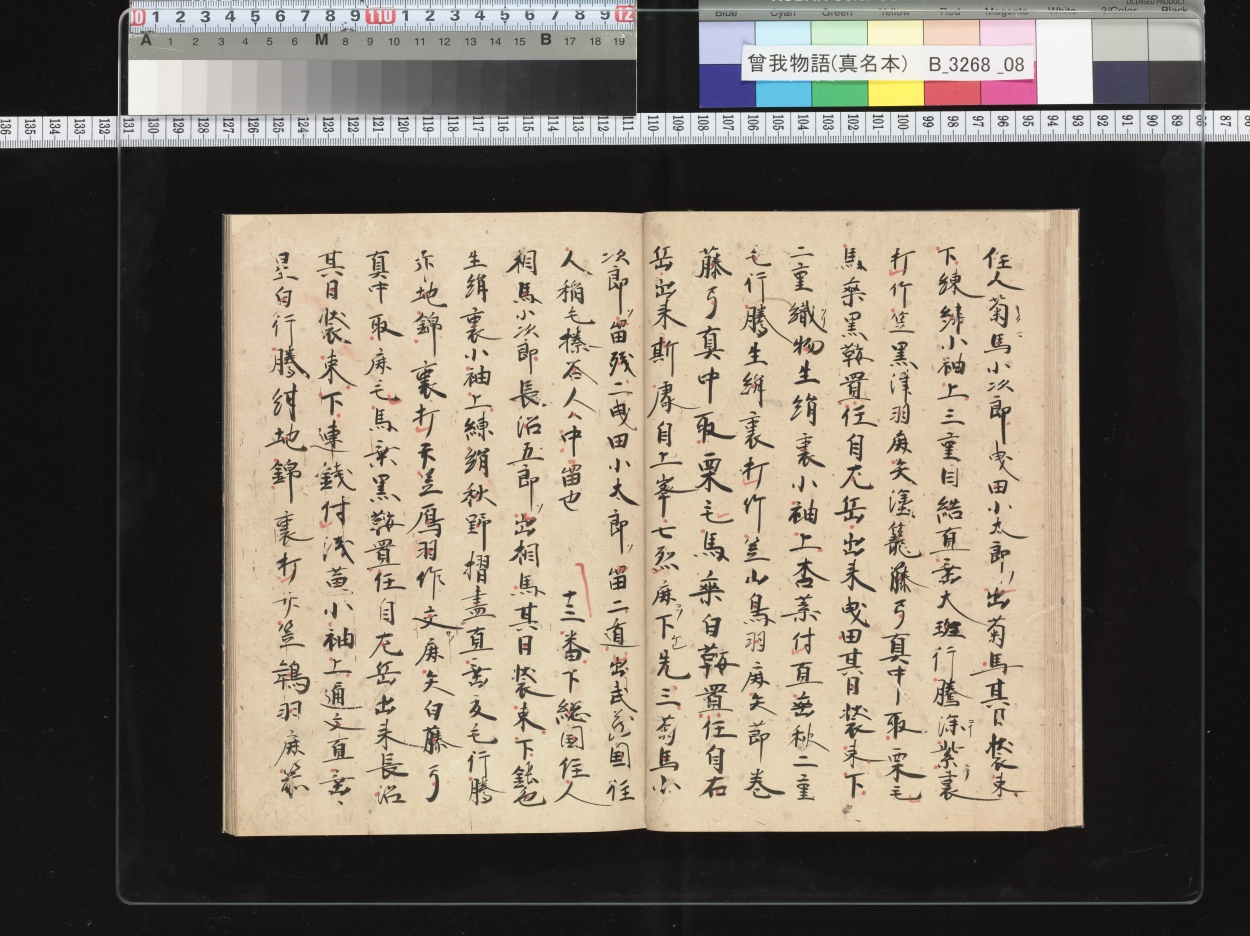 曾我物語(真名本) B_3268_08
住人菊馬小次郎曳田小太郎出菊馬其日装束
下練絹小袖上三重目結直垂大班行騰深紫裏
打竹笠黒津羽麻矢塗籠藤弓真中取栗毛
馬乗黒鞍置任自左岳出来曳田其日装束下
二重織物生絹裏小袖上杏葉付直垂秋二重
毛行騰生絹裏打竹笠山鳥羽麻矢節巻
藤弓真中取栗毛馬乗白鞍置任自右
岳出来斯處自上峯七烈麻下先三菊馬小
次郎留残二曳田小太郎留二道出武蔵国住
人稲毛榛谷人々中留也 十三番下総国住人
相馬小次郎長沼五郎出相馬其日装束下
生絹裏小袖上練絹秋野摺盡直垂夏毛行騰
赤地錦裏打天笠鴈羽作文麻矢白藤弓
真中取麻毛馬乗黒鞍置任自左岳出来長沼
其日装束下連銭付浅黄小袖上遁文直垂
星白行騰紺地錦裏打竹笠鵇羽麻